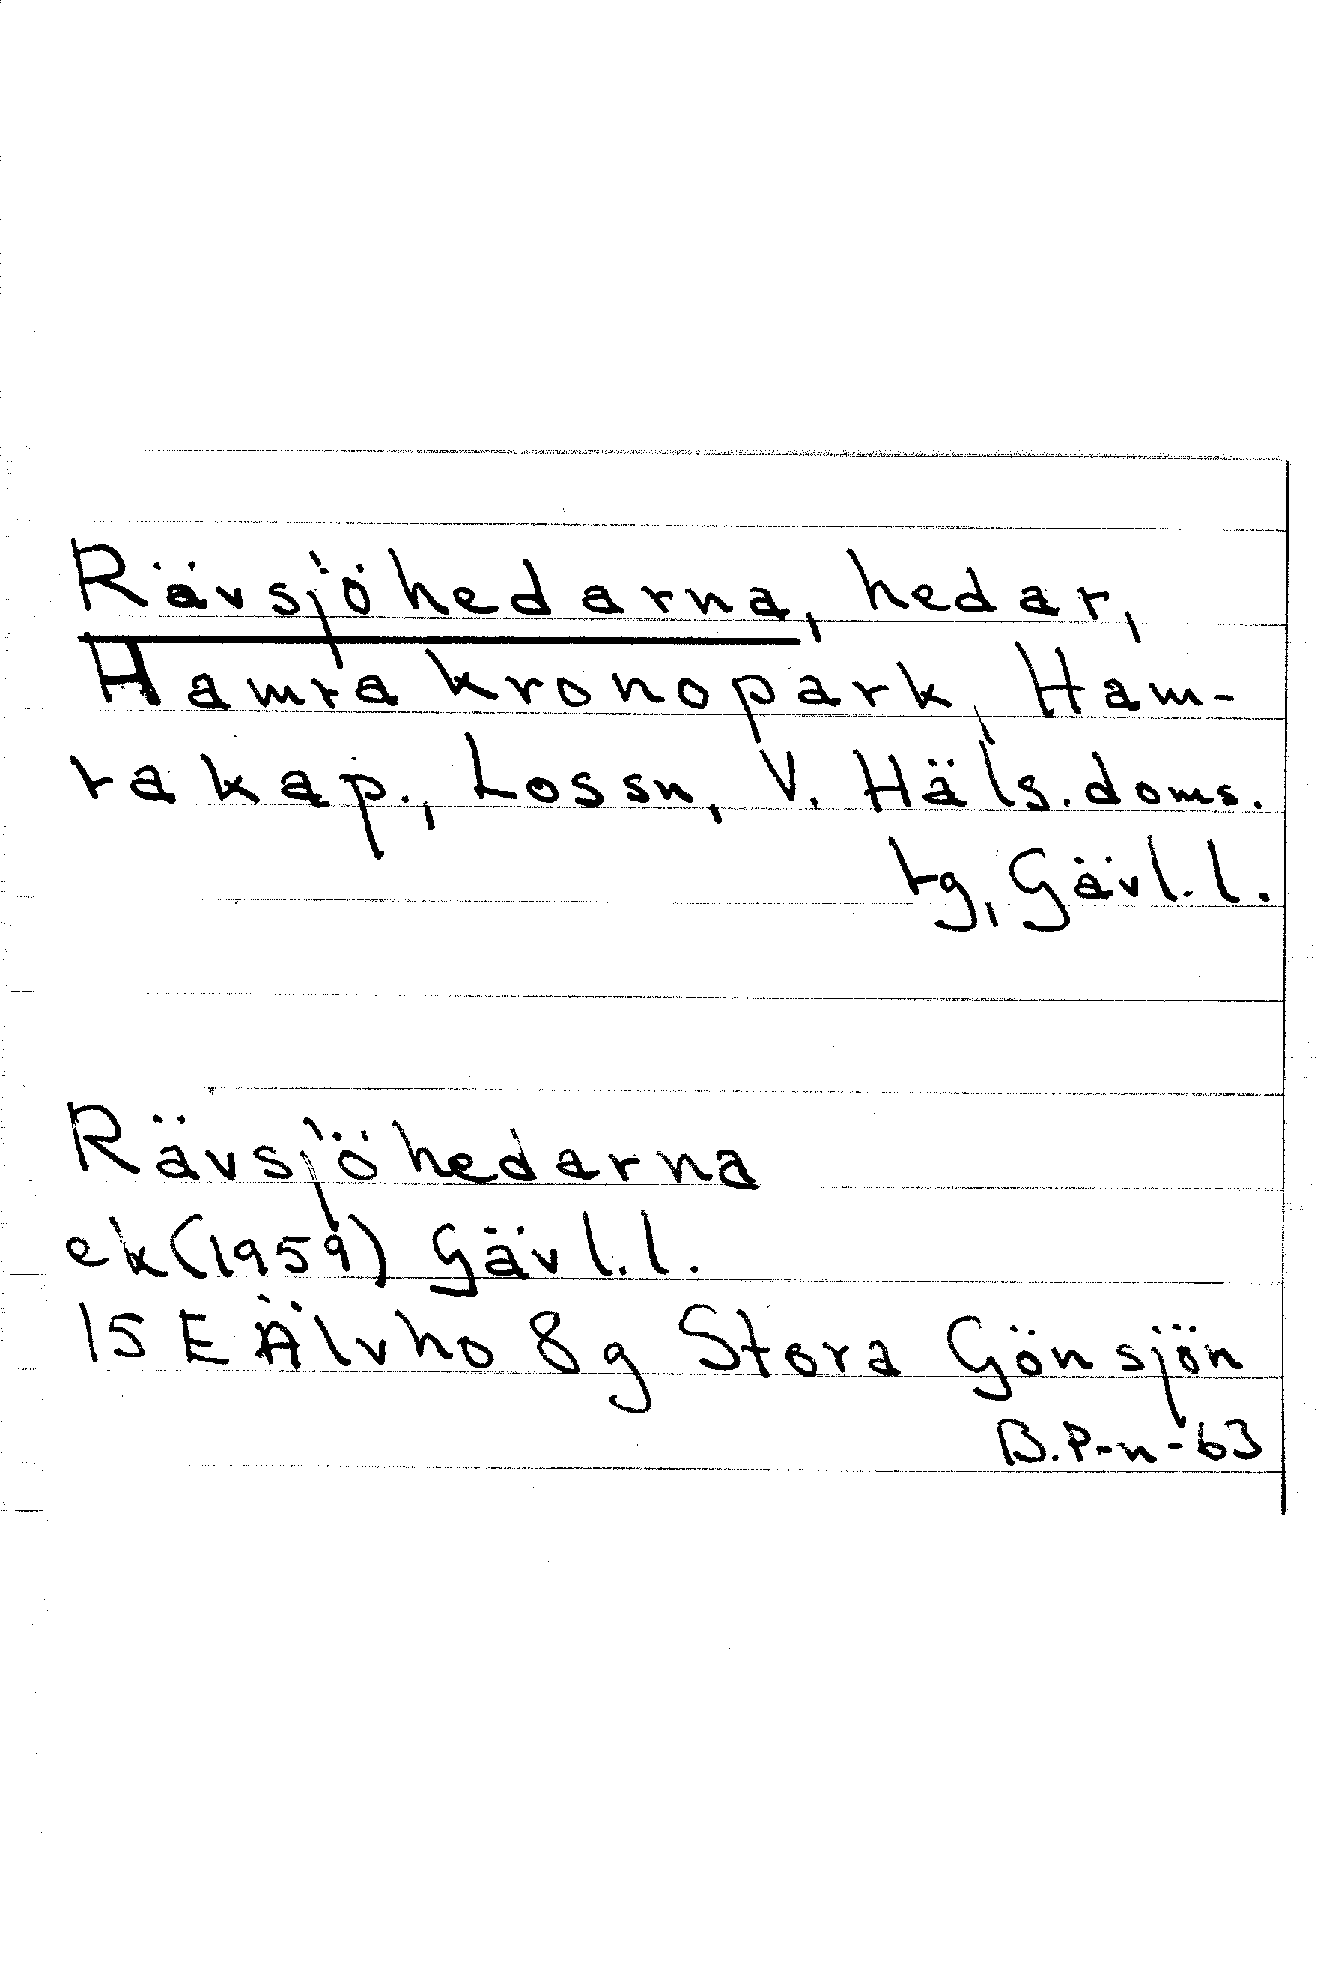 Rävsjöhedarna, hedar,
Hamra kronopark, Ham-
ra kap., Lossn, V. Häls. doms.
tg, Gävl. l.
Rävsjöhedarna
ek (1959) Gävl. l.
15 E Älvho 8 g Stora Gönsjön
B. P-n -63